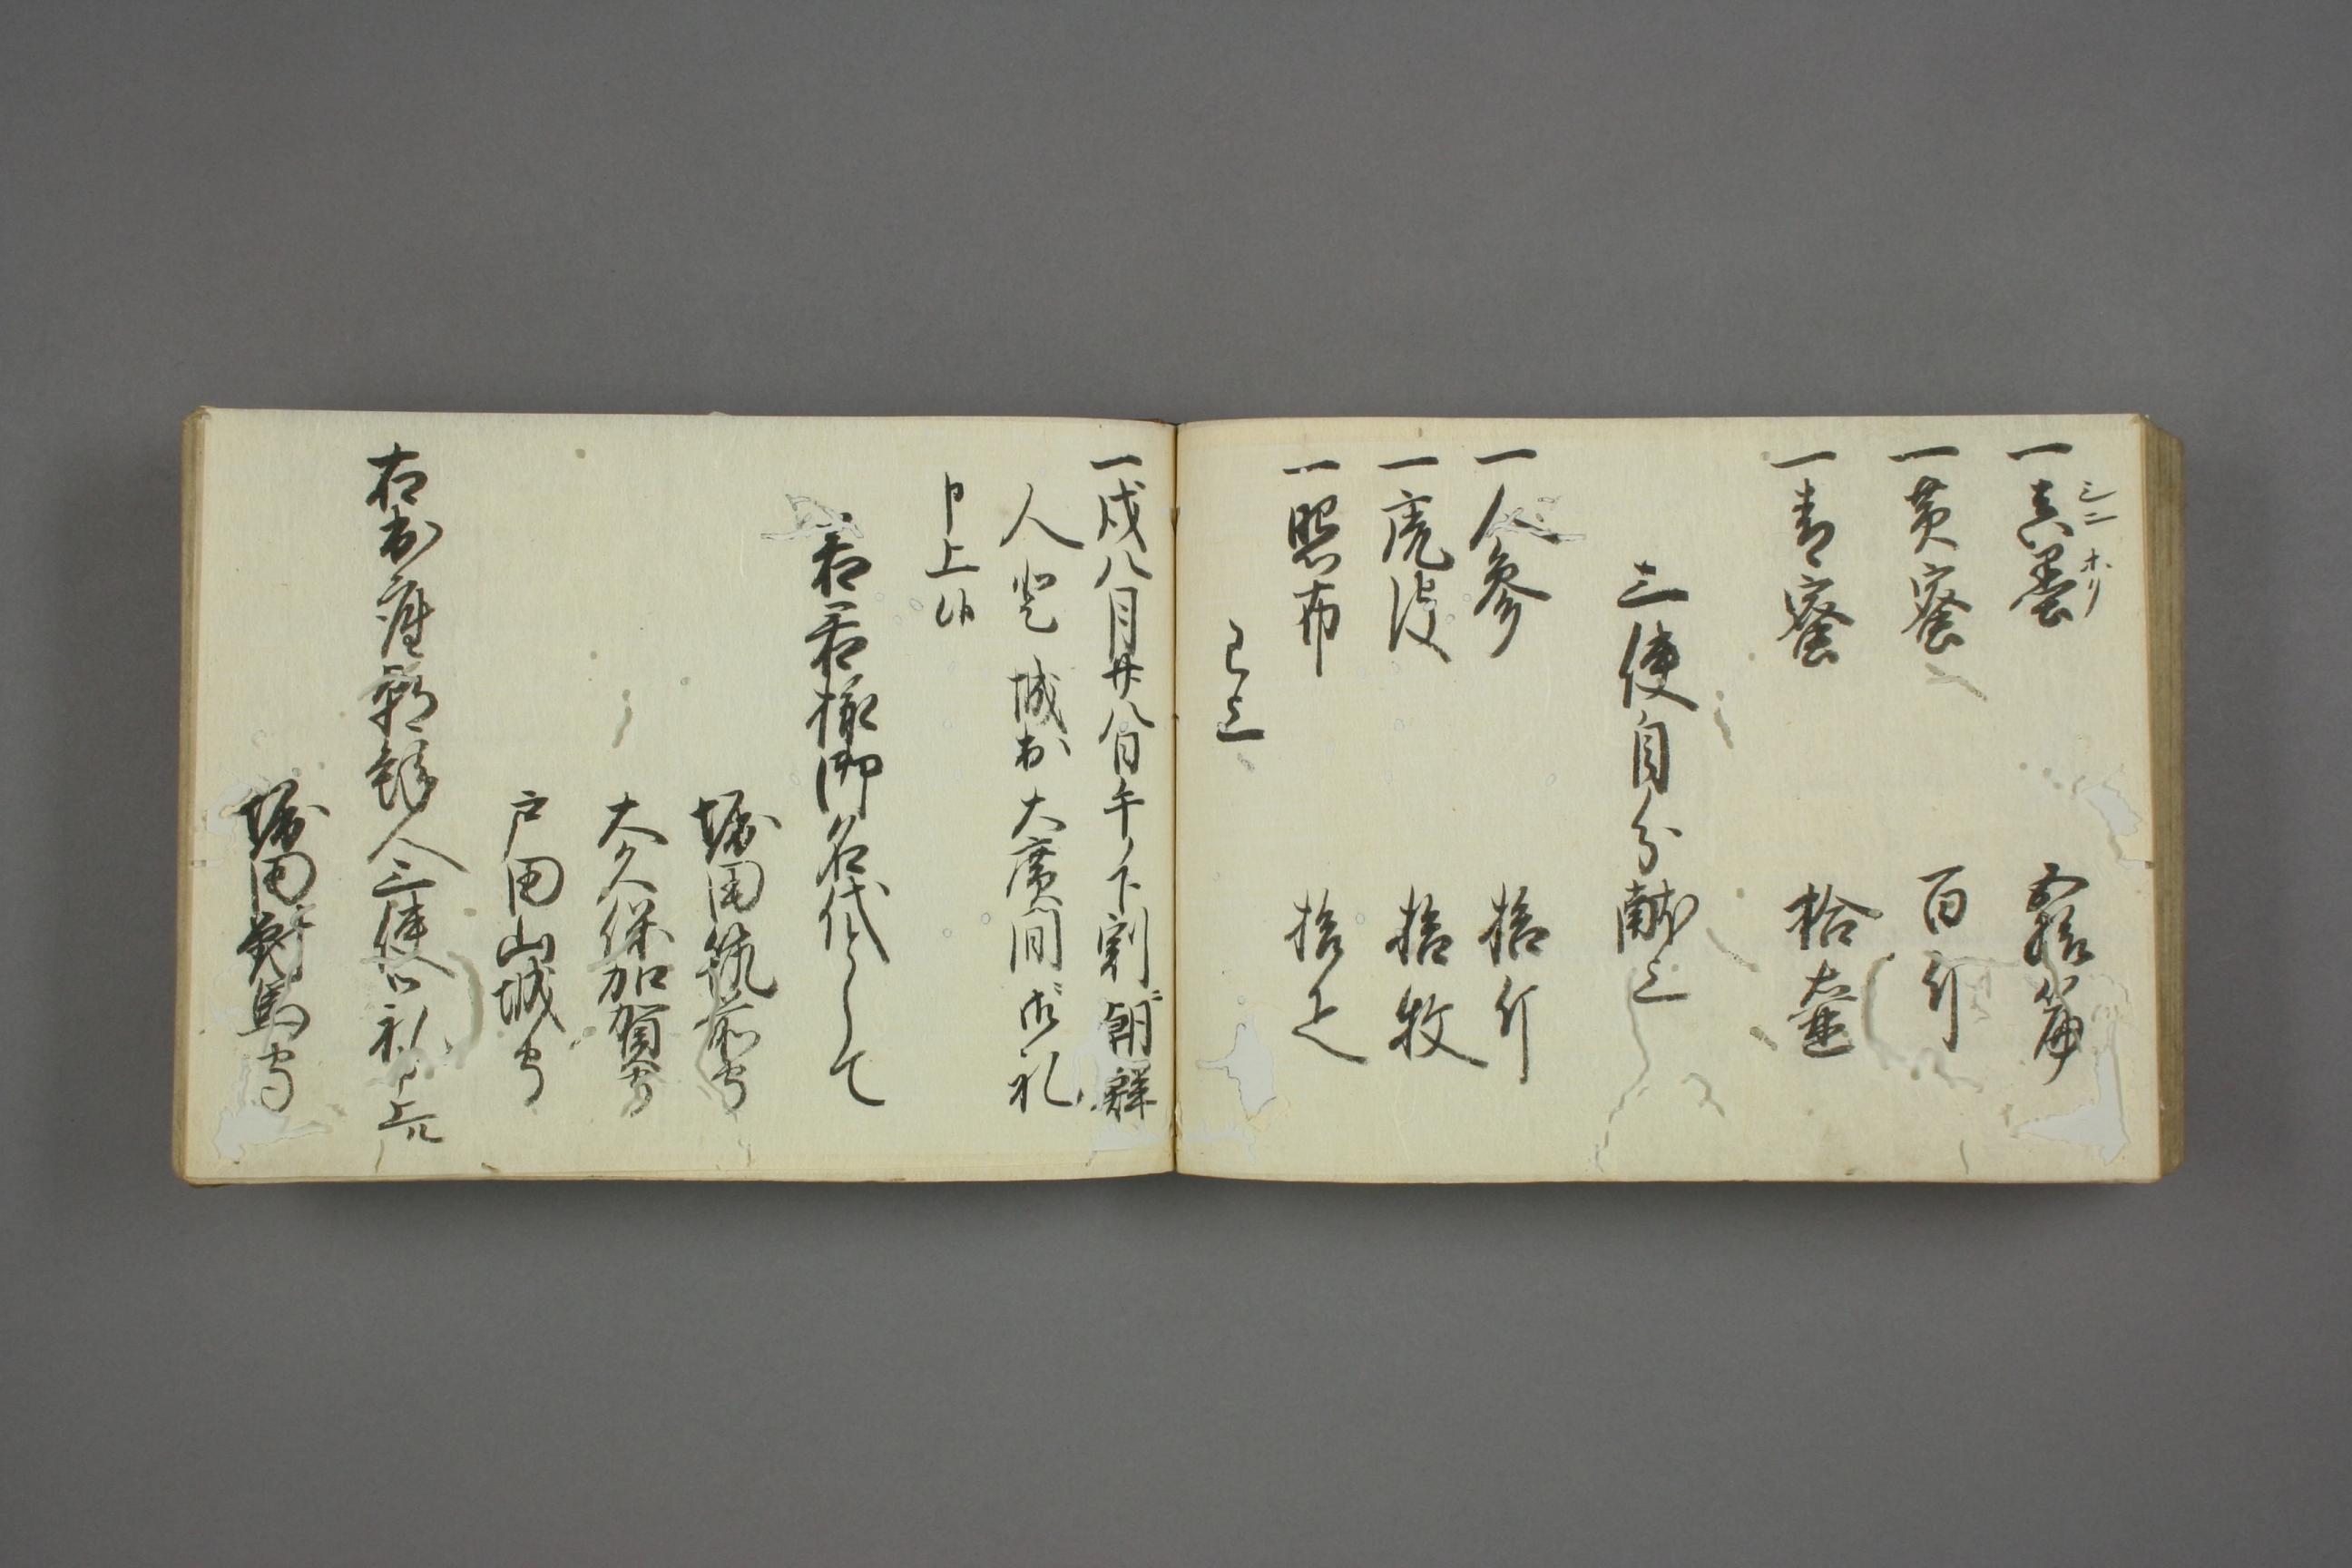 一真墨 五拾笏
シン ホク
一黄蜜 百斤
一青蜜 拾壺
三使自分献上
一人參 拾斤
一虎皮 拾枚
一照布 拾疋
已上
一戌八月廿八日午ノ下刻朝鮮
人登 城於大廣間御礼
申上候
若君様御名代として
堀田筑前守
大久保加賀守
戸田山城守
右於座朝鮮人三使御礼申上ル
堀田對馬守